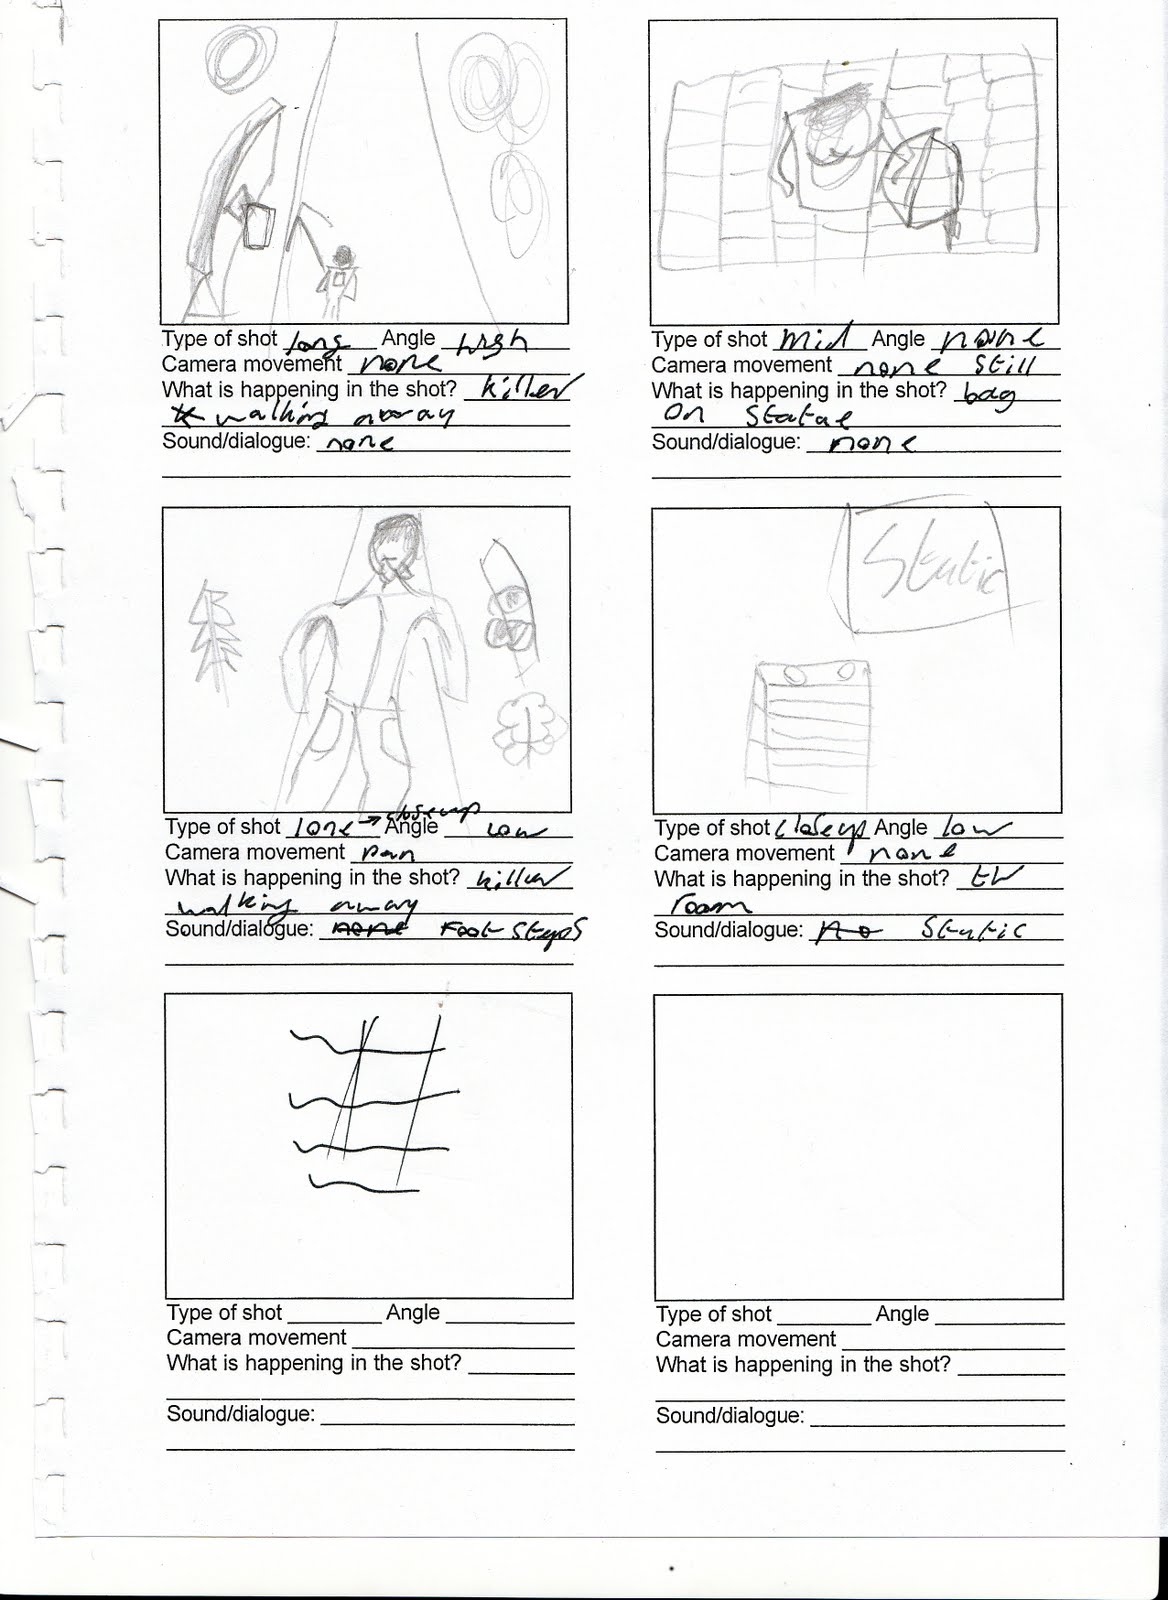 Type of shot long Angle high
Camera movement none
What is happening in the shot? killer
walking away
Sound/dialogue: none
Type of shot mid Angle none
Camera movement none still
What is happening in the shot? bag
on statue
Sound/dialogue: none
Static
Type of shot long → closeup Angle low
Camera movement pan
What is happening in the shot? killer
walking away
Sound/dialogue: none Foot steps
Type of shot closeup Angle low
Camera movement none
What is happening in the shot? TV
room
Sound/dialogue: no static
Type of shot Angle
Camera movement
What is happening in the shot?
Sound/dialogue:
Type of shot Angle
Camera movement
What is happening in the shot?
Sound/dialogue: